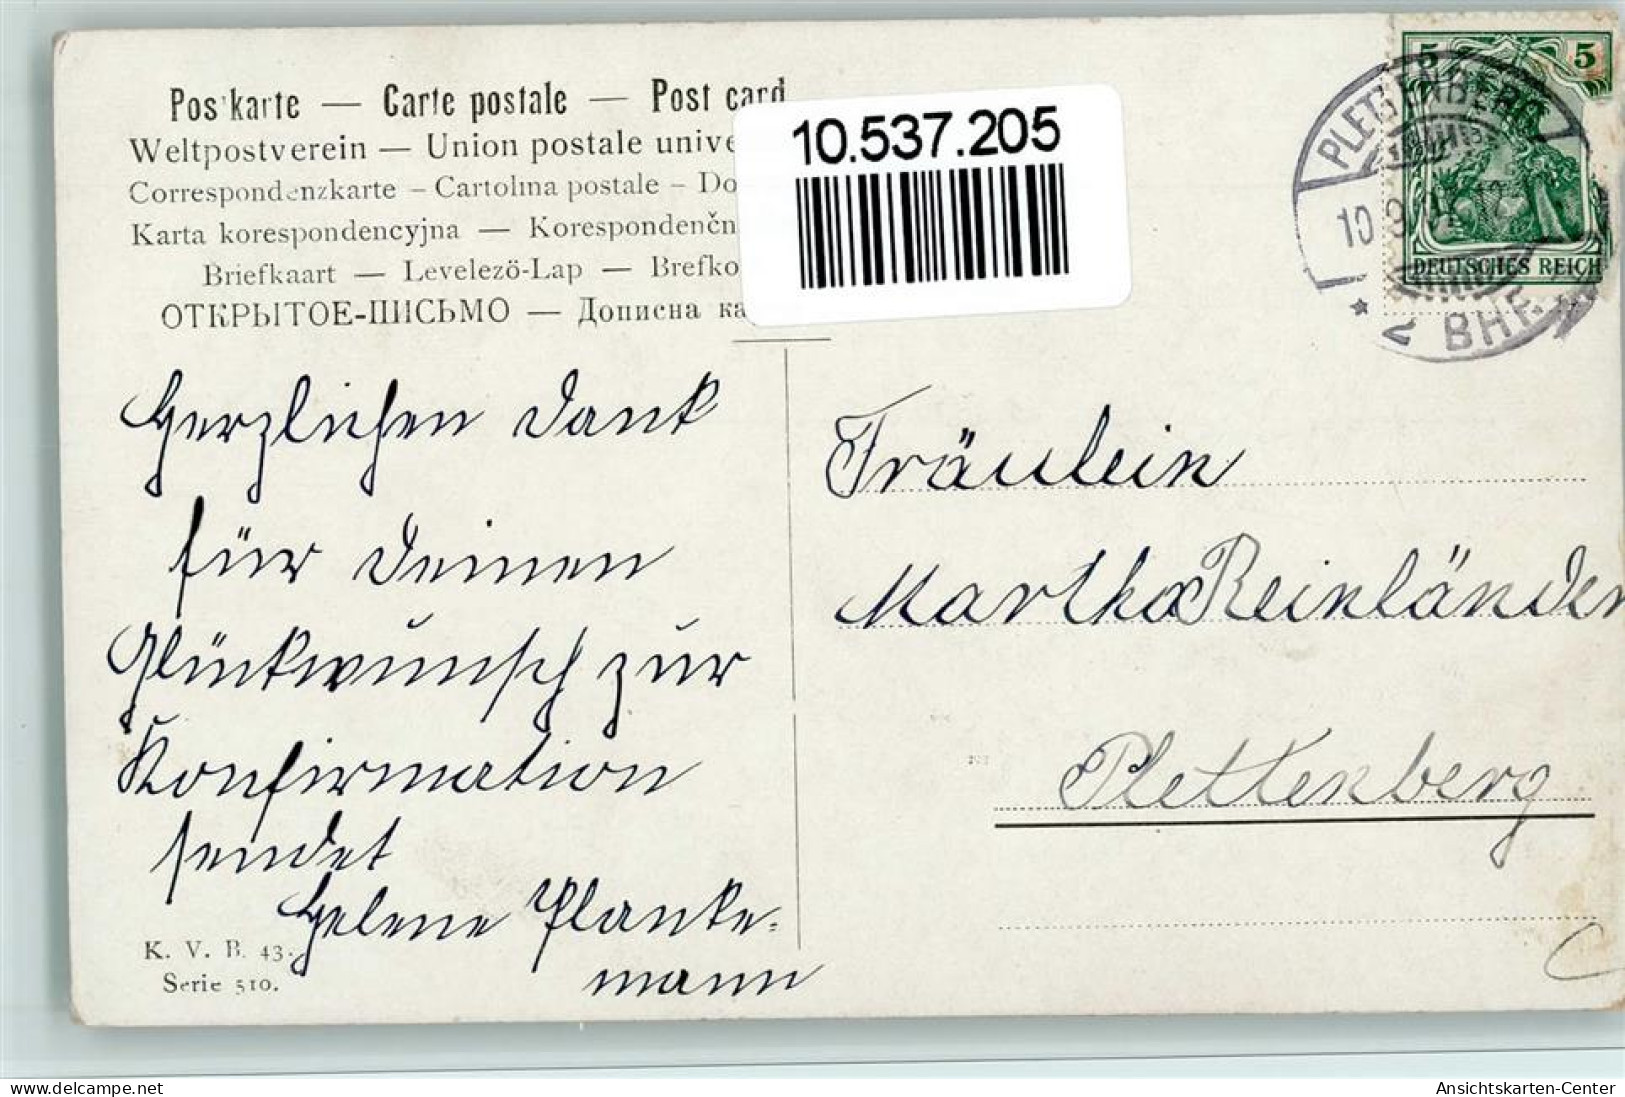 Postkarte — Carte postale — Post card
Weltpostverein — Union postale unive
Correspondenzkarte – Cartolina postale – Do
Karta korespondencyjna — Korespondenčn
Briefkaart — Levelezö-Lap — Brefko
ОТКРЫТОЕ-ПИСЬМО — Дописна ка
10.537.205
5 5
DEUTSCHES REICH
PLETTENBERG
10 9
* 2 BHF.
Herzlichen Dank
für Deinen
Glückwunsch zur
Konfirmation
sendet
Helene Planke-
mann
Fräulein
Martha Reinländer
Plettenberg
K. V. B. 43.
Serie 510.
www.delcampe.net
Ansichtskarten-Center